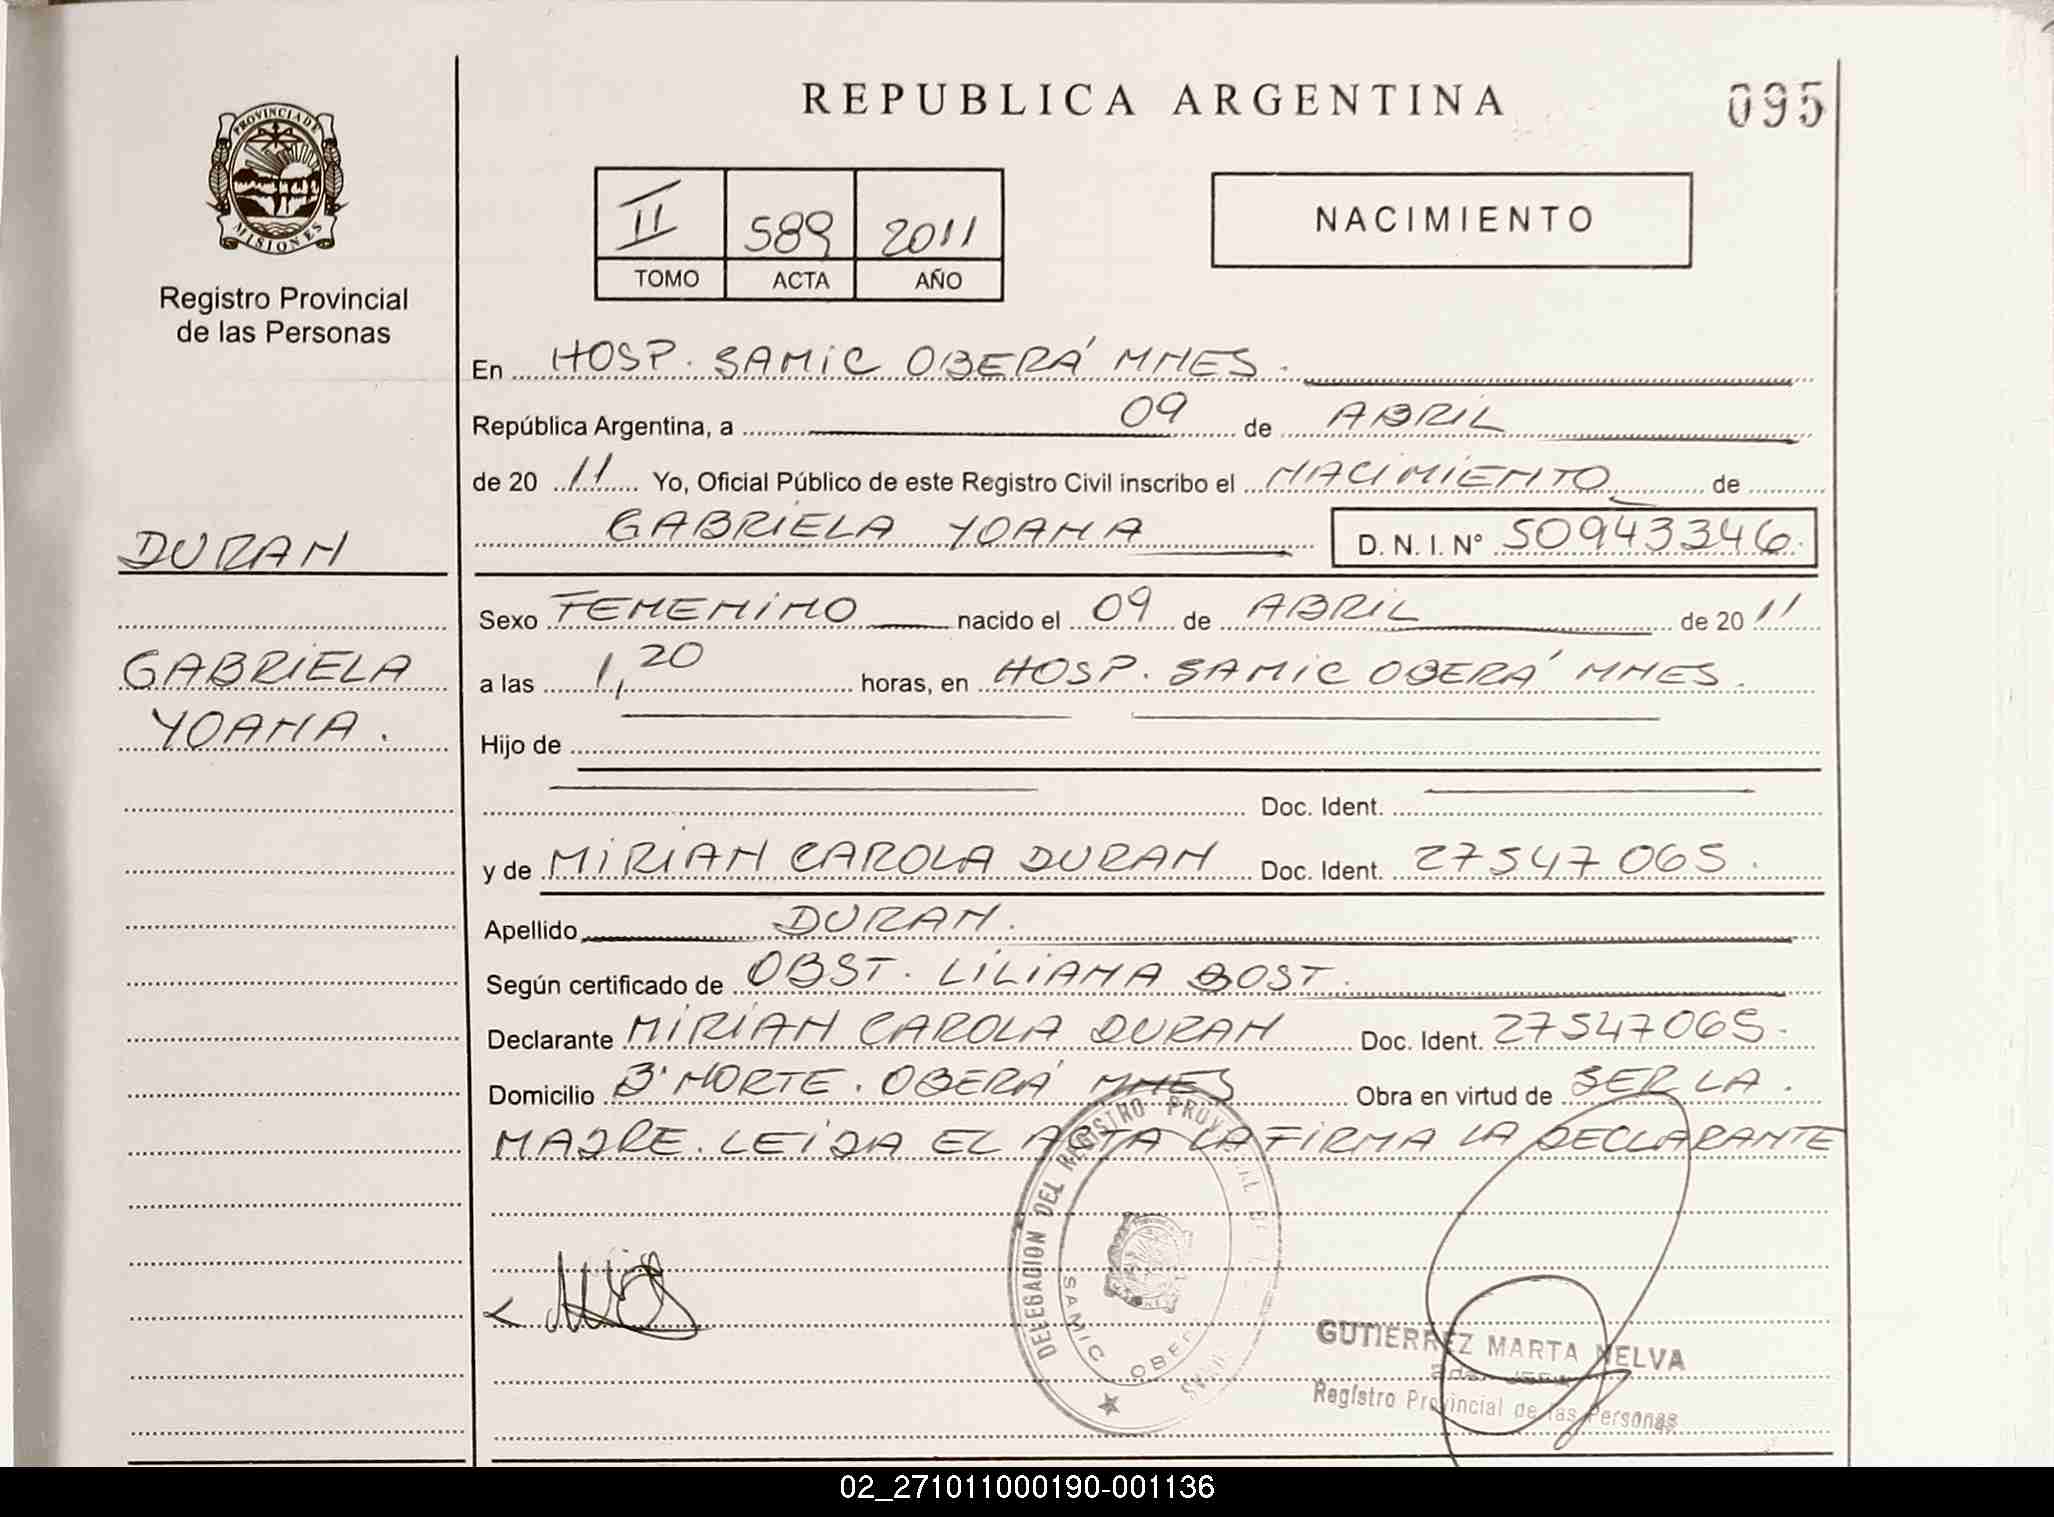 REPUBLICA ARGENTINA
095
PROVINCIA DE
MISIONES
Registro Provincial
de las Personas
II 589 2011
TOMO ACTA AÑO
NACIMIENTO
En HOSP. SAMIC OBERÁ MNES.
República Argentina, a 09 de ABRIL
de 20 11 Yo, Oficial Público de este Registro Civil inscribo el NACIMIENTO de
GABRIELA YOANA D. N. I. Nº 50943346.
DURAN
GABRIELA
YOANA.
Sexo FEMENINO nacido el 09 de ABRIL de 20 11
a las 1,20 horas, en HOSP. SAMIC OBERÁ MNES.
Hijo de
Doc. Ident.
y de MIRIAN CAROLA DURAN Doc. Ident. 27547065.
Apellido DURAN.
Según certificado de OBST. LILIANA BOST.
Declarante MIRIAN CAROLA DURAN Doc. Ident. 27547065.
Domicilio Bº NORTE. OBERÁ MNES Obra en virtud de SER LA.
MADRE. LEIDA EL ACTA LA FIRMA LA DECLARANTE
DELEGACION DEL REGISTRO
SAMIC
GUTIERREZ MARTA NELVA
Registro Provincial de las Personas
02_271011000190-001136